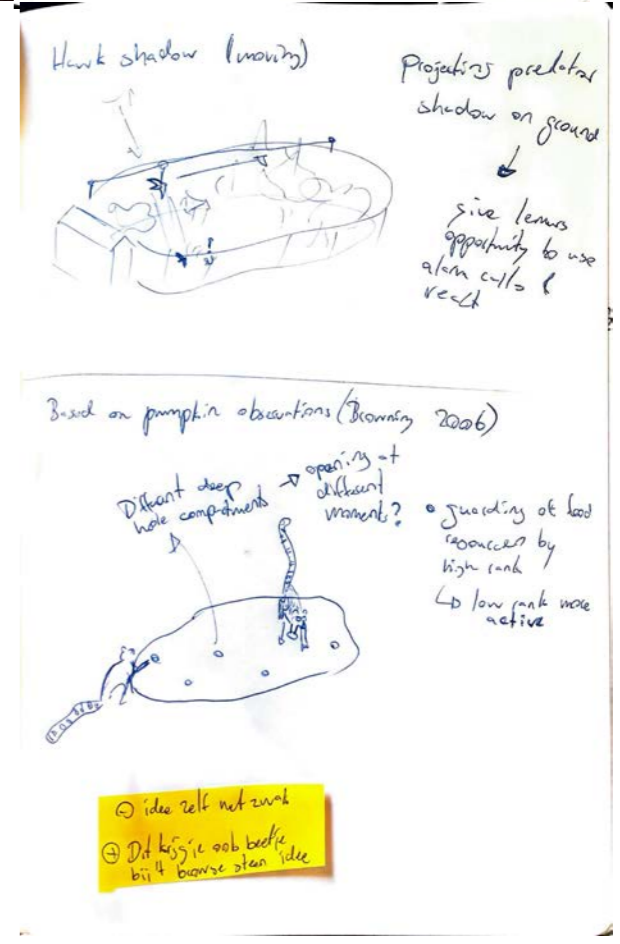 Hawk shadow (moving)
Projecting predator
shadow on ground
give lemurs
opportunity to use
alarm calls &
react
Based on pumpkin observations (Browning 2006)
Different deep
hole compartments
opening at
different
moments?
guarding of food
resources by
high rank
↳ low rank more
active
⊖ idee zelf net zwak
⊕ Dit krijg je ook beetje
bij 't browse steen idee